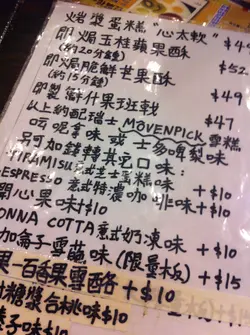 燶漿蛋糕"心太軟" $4
即焗玉桂蘋果酥 $52
(約20分鐘)
即焗脆鮮芒果酥 $49
(約15分鐘)
即製雜什果班戟 $47
以上約配瑞士MÖVENPICK雪糕
呍呢拿味或士多啤梨味
另可加錢轉其它口味:
TIRAMISU 芝士蛋糕味 +$10
ESPRESSO 意式特濃咖啡味 +$10
開心果味+$10
ONNA COTTA 意式奶凍味 +$10
加侖子雪葩味(限量板) +$15
果-百香果雪酪 +$10
糖漿合桃味 +$10
子味 +$10